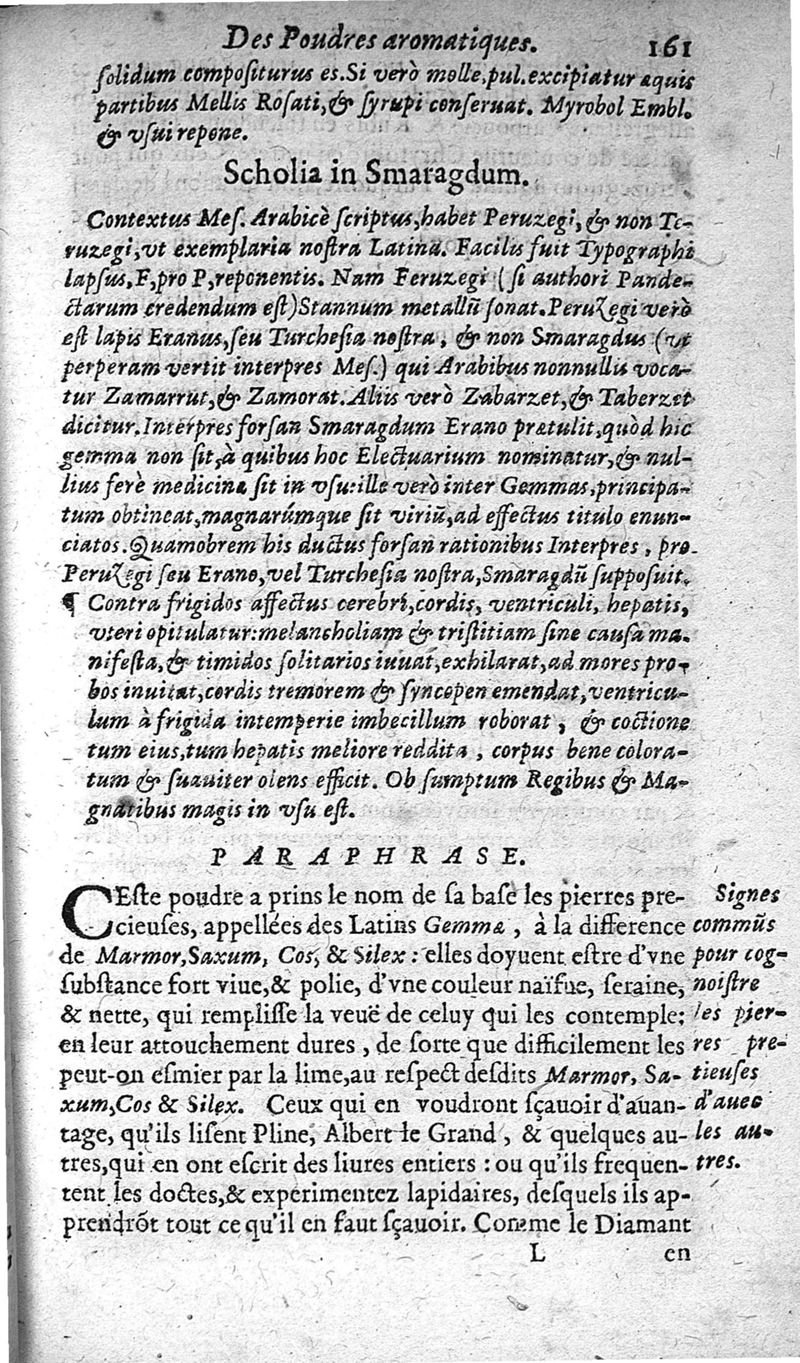 Des Poudres aromatiques. 161
ſolidum compoſiturus es. Si verò molle, pul. excipiatur æquis
partibus Mellis Roſati, & ſyrupi conſeruat. Myrobol Embl.
& vſui repone.
Scholia in Smaragdum.
Contextus Meſ. Arabicè ſcriptus, habet Peruzegi, & non Te-
ruzegi, vt exemplaria noſtra Latina. Facilis fuit Typographi
lapſus, F, pro P, reponentis. Nam Feruzegi (ſi authori Pande-
ctarum credendum eſt) Stannum metallũ ſonat. Peruzegi verò
eſt lapis Eranus, ſeu Turcheſia noſtra, & non Smaragdus (vt
perperam vertit interpres Meſ.) qui Arabibus nonnullis voca-
tur Zamarrut, & Zamorat. Aliis verò Zabarzet, & Taberzet
dicitur. Interpres forſan Smaragdum Erano prætulit, quòd hic
gemma non ſit, à quibus hoc Electuarium nominatur, & nul-
lius ferè medicinæ ſit in vſu: ille verò inter Gemmas, principa-
tum obtineat, magnarúmque ſit viriũ, ad effectus titulo enun-
ciatos. Quamobrem his ductus forſan rationibus Interpres, pro
Peruzegi ſeu Erano, vel Turcheſia noſtra, Smaragdũ ſuppoſuit.
¶ Contra frigidos affectus cerebri, cordis, ventriculi, hepatis,
vteri opitulatur: melancholiam & triſtitiam ſine cauſa ma-
nifeſta, & timidos ſolitarios iuuat, exhilarat, ad mores pro-
bos inuitat, cordis tremorem & ſyncopen emendat, ventricu-
lum à frigida intemperie imbecillum roborat, & coctione
tum eius, tum hepatis meliore reddita, corpus bene colora-
tum & ſuauiter olens efficit. Ob ſumptum Regibus & Ma-
gnatibus magis in vſu eſt.
PARAPHRASE.
CEſte poudre a prins le nom de ſa baſe les pierres pre-
cieuſes, appellées des Latins Gemmæ, à la difference
de Marmor, Saxum, Cos, & Silex: elles doyuent eſtre d'vne
ſubſtance fort viue, & polie, d'vne couleur naïfue, ſeraine,
& nette, qui rempliſſe la veuë de celuy qui les contemple:
en leur attouchement dures, de ſorte que difficilement les
peut-on eſmier par la lime, au reſpect deſdits Marmor, Sa-
xum, Cos & Silex. Ceux qui en voudront ſçauoir d'auan-
tage, qu'ils liſent Pline, Albert le Grand, & quelques au-
tres, qui en ont eſcrit des liures entiers: ou qu'ils frequen-
tent les doctes, & experimentez lapidaires, deſquels ils ap-
prendrõt tout ce qu'il en faut ſçauoir. Comme le Diamant
L en
Signes
commũs
pour cog-
noiſtre
les pier-
res pre-
tieuſes
d'auec
les au-
tres.